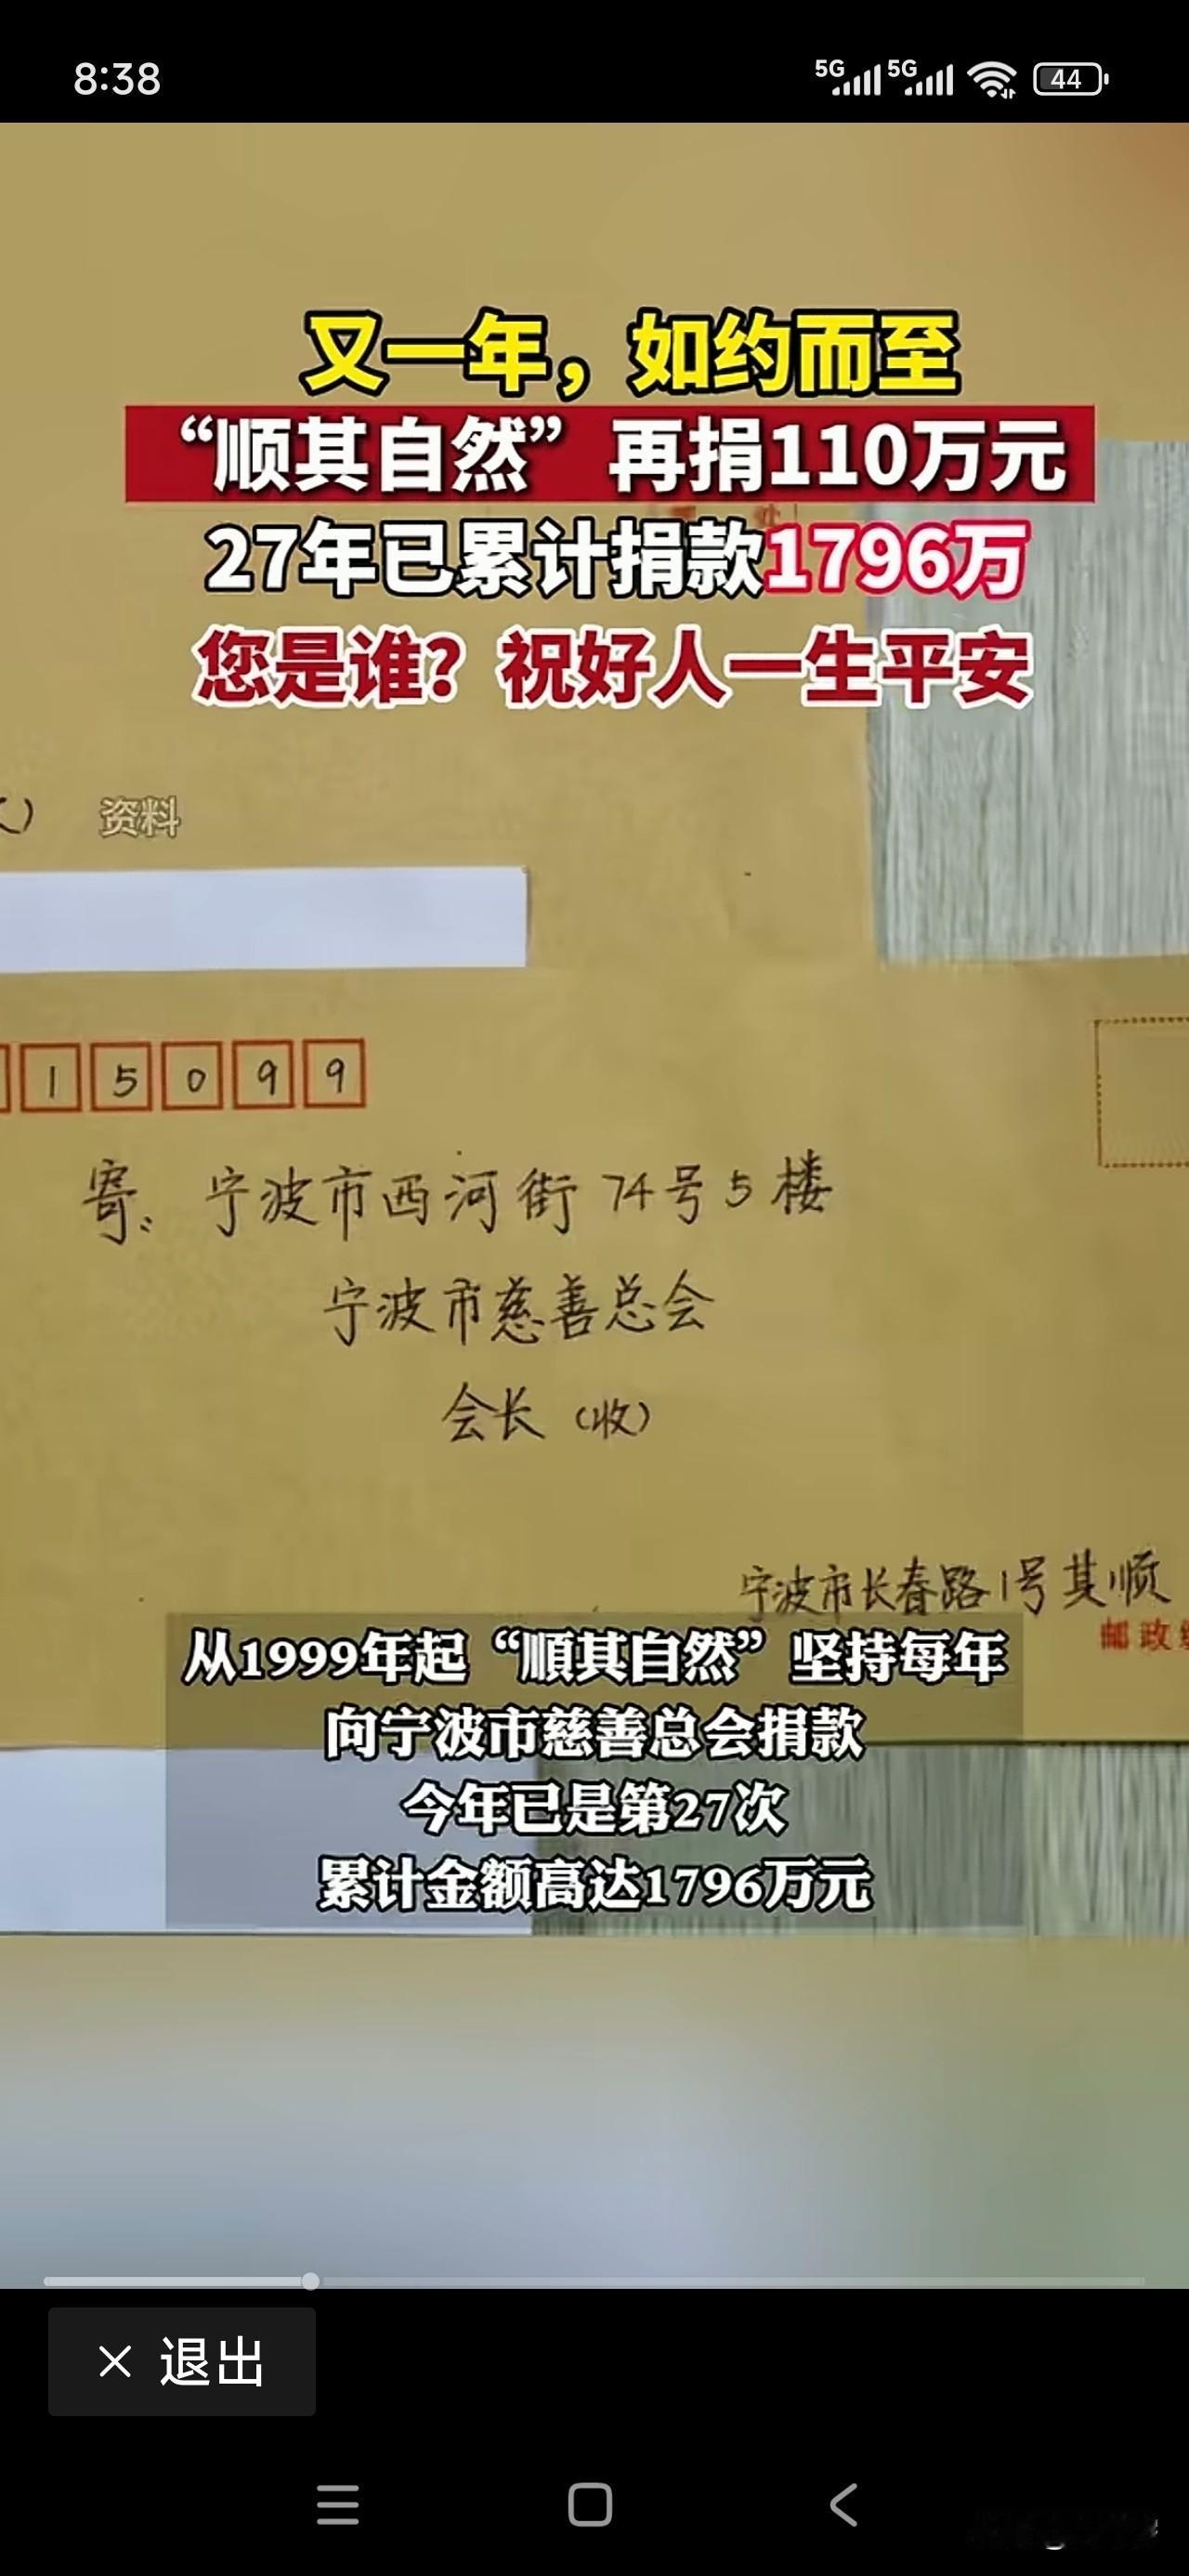 8:38
5G 5G 44
又一年，如约而至
“顺其自然”再捐110万元
27年已累计捐款1796万
您是谁？祝好人一生平安
资料
1 5 0 9 9
寄：宁波市西河街74号5楼
宁波市慈善总会
会长（收）
宁波市长春路1号其顺
邮政
从1999年起“順其自然”坚持每年
向宁波市慈善总会捐款
今年已是第27次
累计金额高达1796万元
× 退出